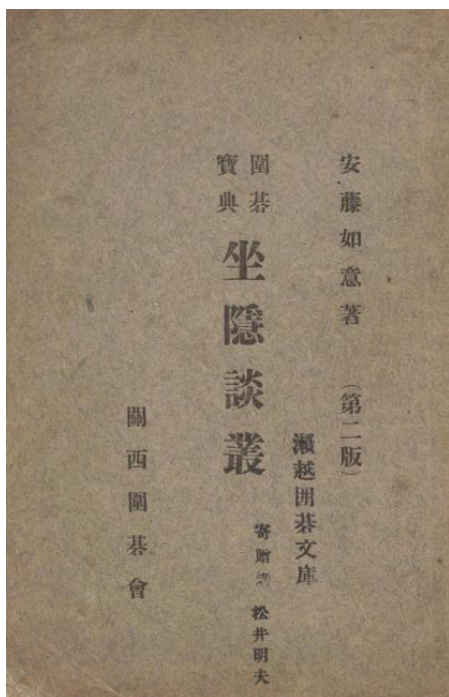 安藤如意著　（第二版）
圍棊
寶典
坐隱談叢
瀨越囲碁文庫
寄贈者　松井明夫
關西圍棊會